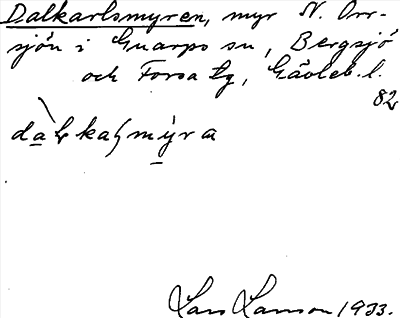 Dalkarlsmyren, myr N. Orr-
sjön i Gnarps sn, Bergsjö
och Forsa tg, Gävleb. l.
82
Lars Larsson 1933.